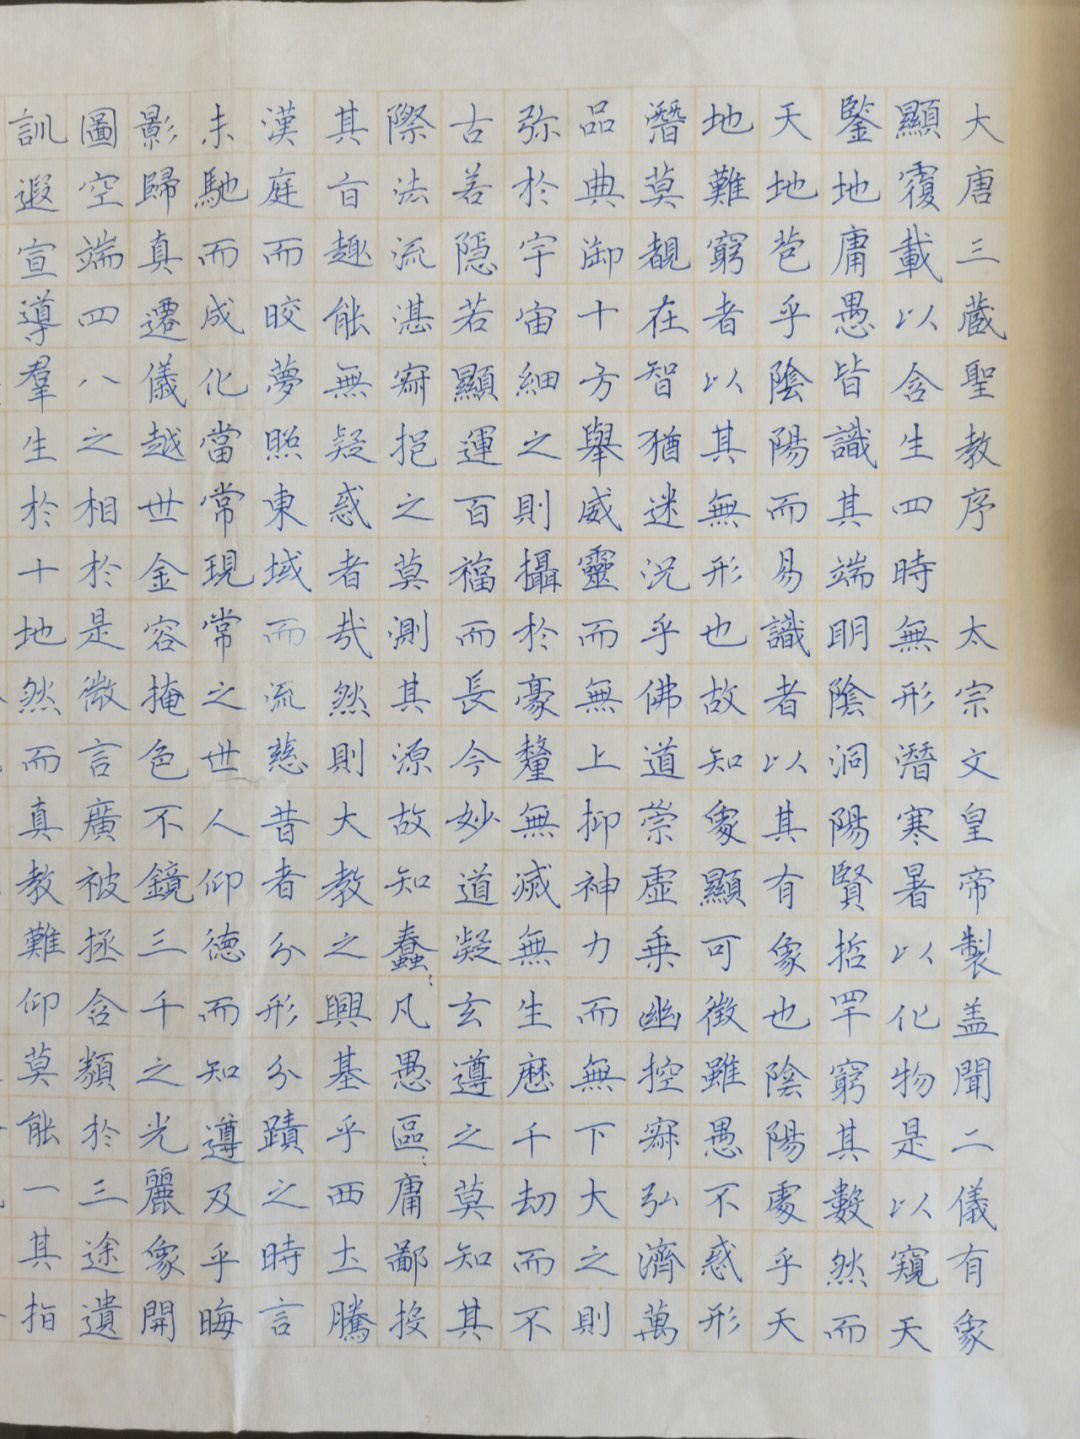 大唐三藏聖教序　太宗文皇帝製盖聞二儀有象
顯覆載以含生四時無形潛寒暑以化物是以窺天
鑒地庸愚皆識其端明陰洞陽賢哲罕窮其數然而
天地苞乎陰陽而易識者以其有象也陰陽處乎天
地難窮者以其無形也故知象顯可徵雖愚不惑形
潛莫覩在智猶迷況乎佛道崇虛乗幽控寂弘濟萬
品典御十方舉威靈而無上抑神力而無下大之則
弥於宇宙細之則攝於豪釐無滅無生歷千劫而不
古若隱若顯運百福而長今妙道凝玄遵之莫知其
際法流湛寂挹之莫測其源故知蠢:凡愚區:庸鄙投
其旨趣能無疑惑者哉然則大教之興基乎西土騰
漢庭而晈夢照東域而流慈昔者分形分蹟之時言
未馳而成化當常現常之世人仰德而知遵及乎晦
影歸真遷儀越世金容掩色不鏡三千之光麗象開
圖空端四八之相於是微言廣被拯含類於三途遺
訓遐宣導羣生於十地然而真教難仰莫能一其指